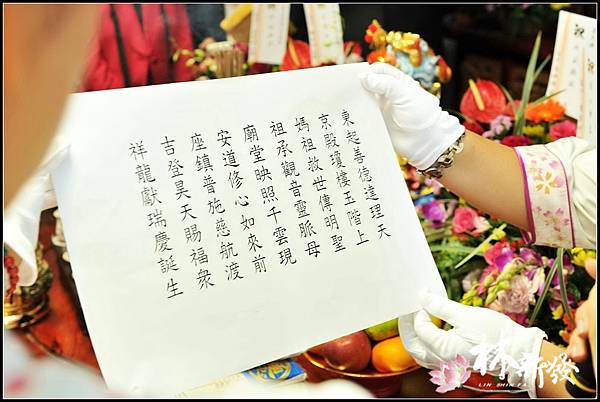 東起善德達理天
京殿瓊樓玉階上
媽祖救世傳明聖
祖承觀音靈脈母
廟堂映照千雲現
安道修心如來前
座鎮普施慈航渡
吉登昊天賜福眾
祥龍獻瑞慶誕生
林新發
LIN SHIN FA